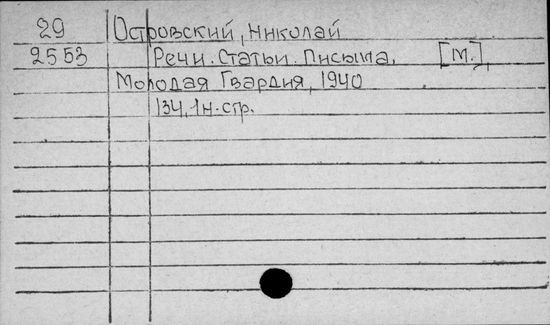 29 Островский, Николай
2553 Речи. Статьи. Письма. [М.],
Молодая Гвардия, 1940
134, 1н.стр.